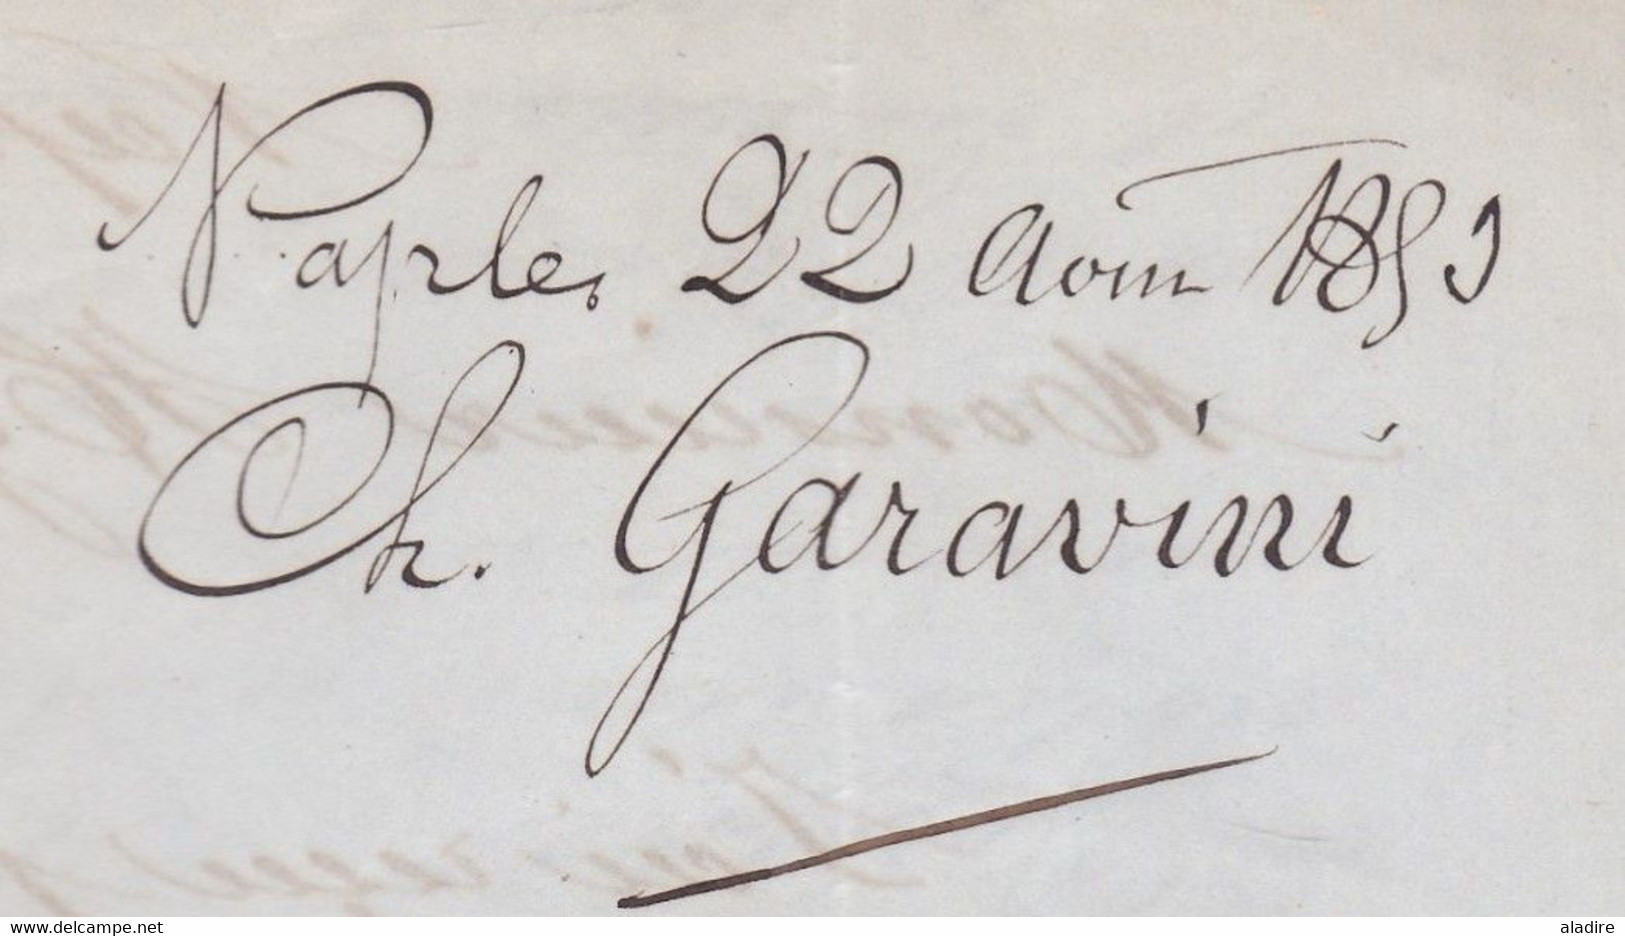 Naples 22 Août 1853
Ch. Garavini
delcampe.net
aladire